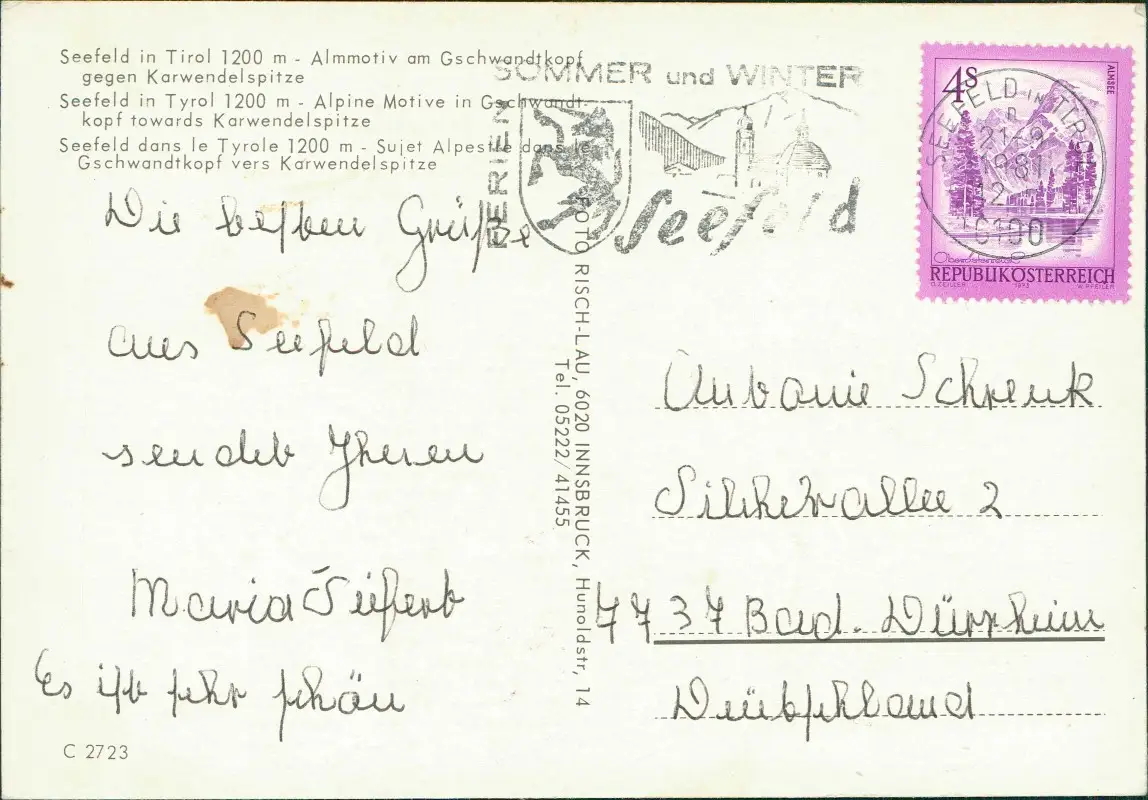 Seefeld in Tirol 1200 m - Almmotiv am Gschwandtkopf
gegen Karwendelspitze
Seefeld in Tyrol 1200 m - Alpine Motive in Gschwandt-
kopf towards Karwendelspitze
Seefeld dans le Tyrole 1200 m - Sujet Alpestre dans le
Gschwandtkopf vers Karwendelspitze
FERIEN
SOMMER und WINTER
Seefeld
4S
ALMSEE
SEEFELD IN TIROL
1981
6100
Oberösterreich
REPUBLIK ÖSTERREICH
O. ZEILLER 1973 W. PFEILER
Die besten Grüße
aus Seefeld
sendet Jhenen
Maria Seifert
Es ist sehr schön
C 2723
FOTO RISCH-LAU, 6020 INNSBRUCK, Hunoldstr, 14
Tel. 05222/41455
Antonie Schrenk
7737 Bad. Dürrheim
Deütschland